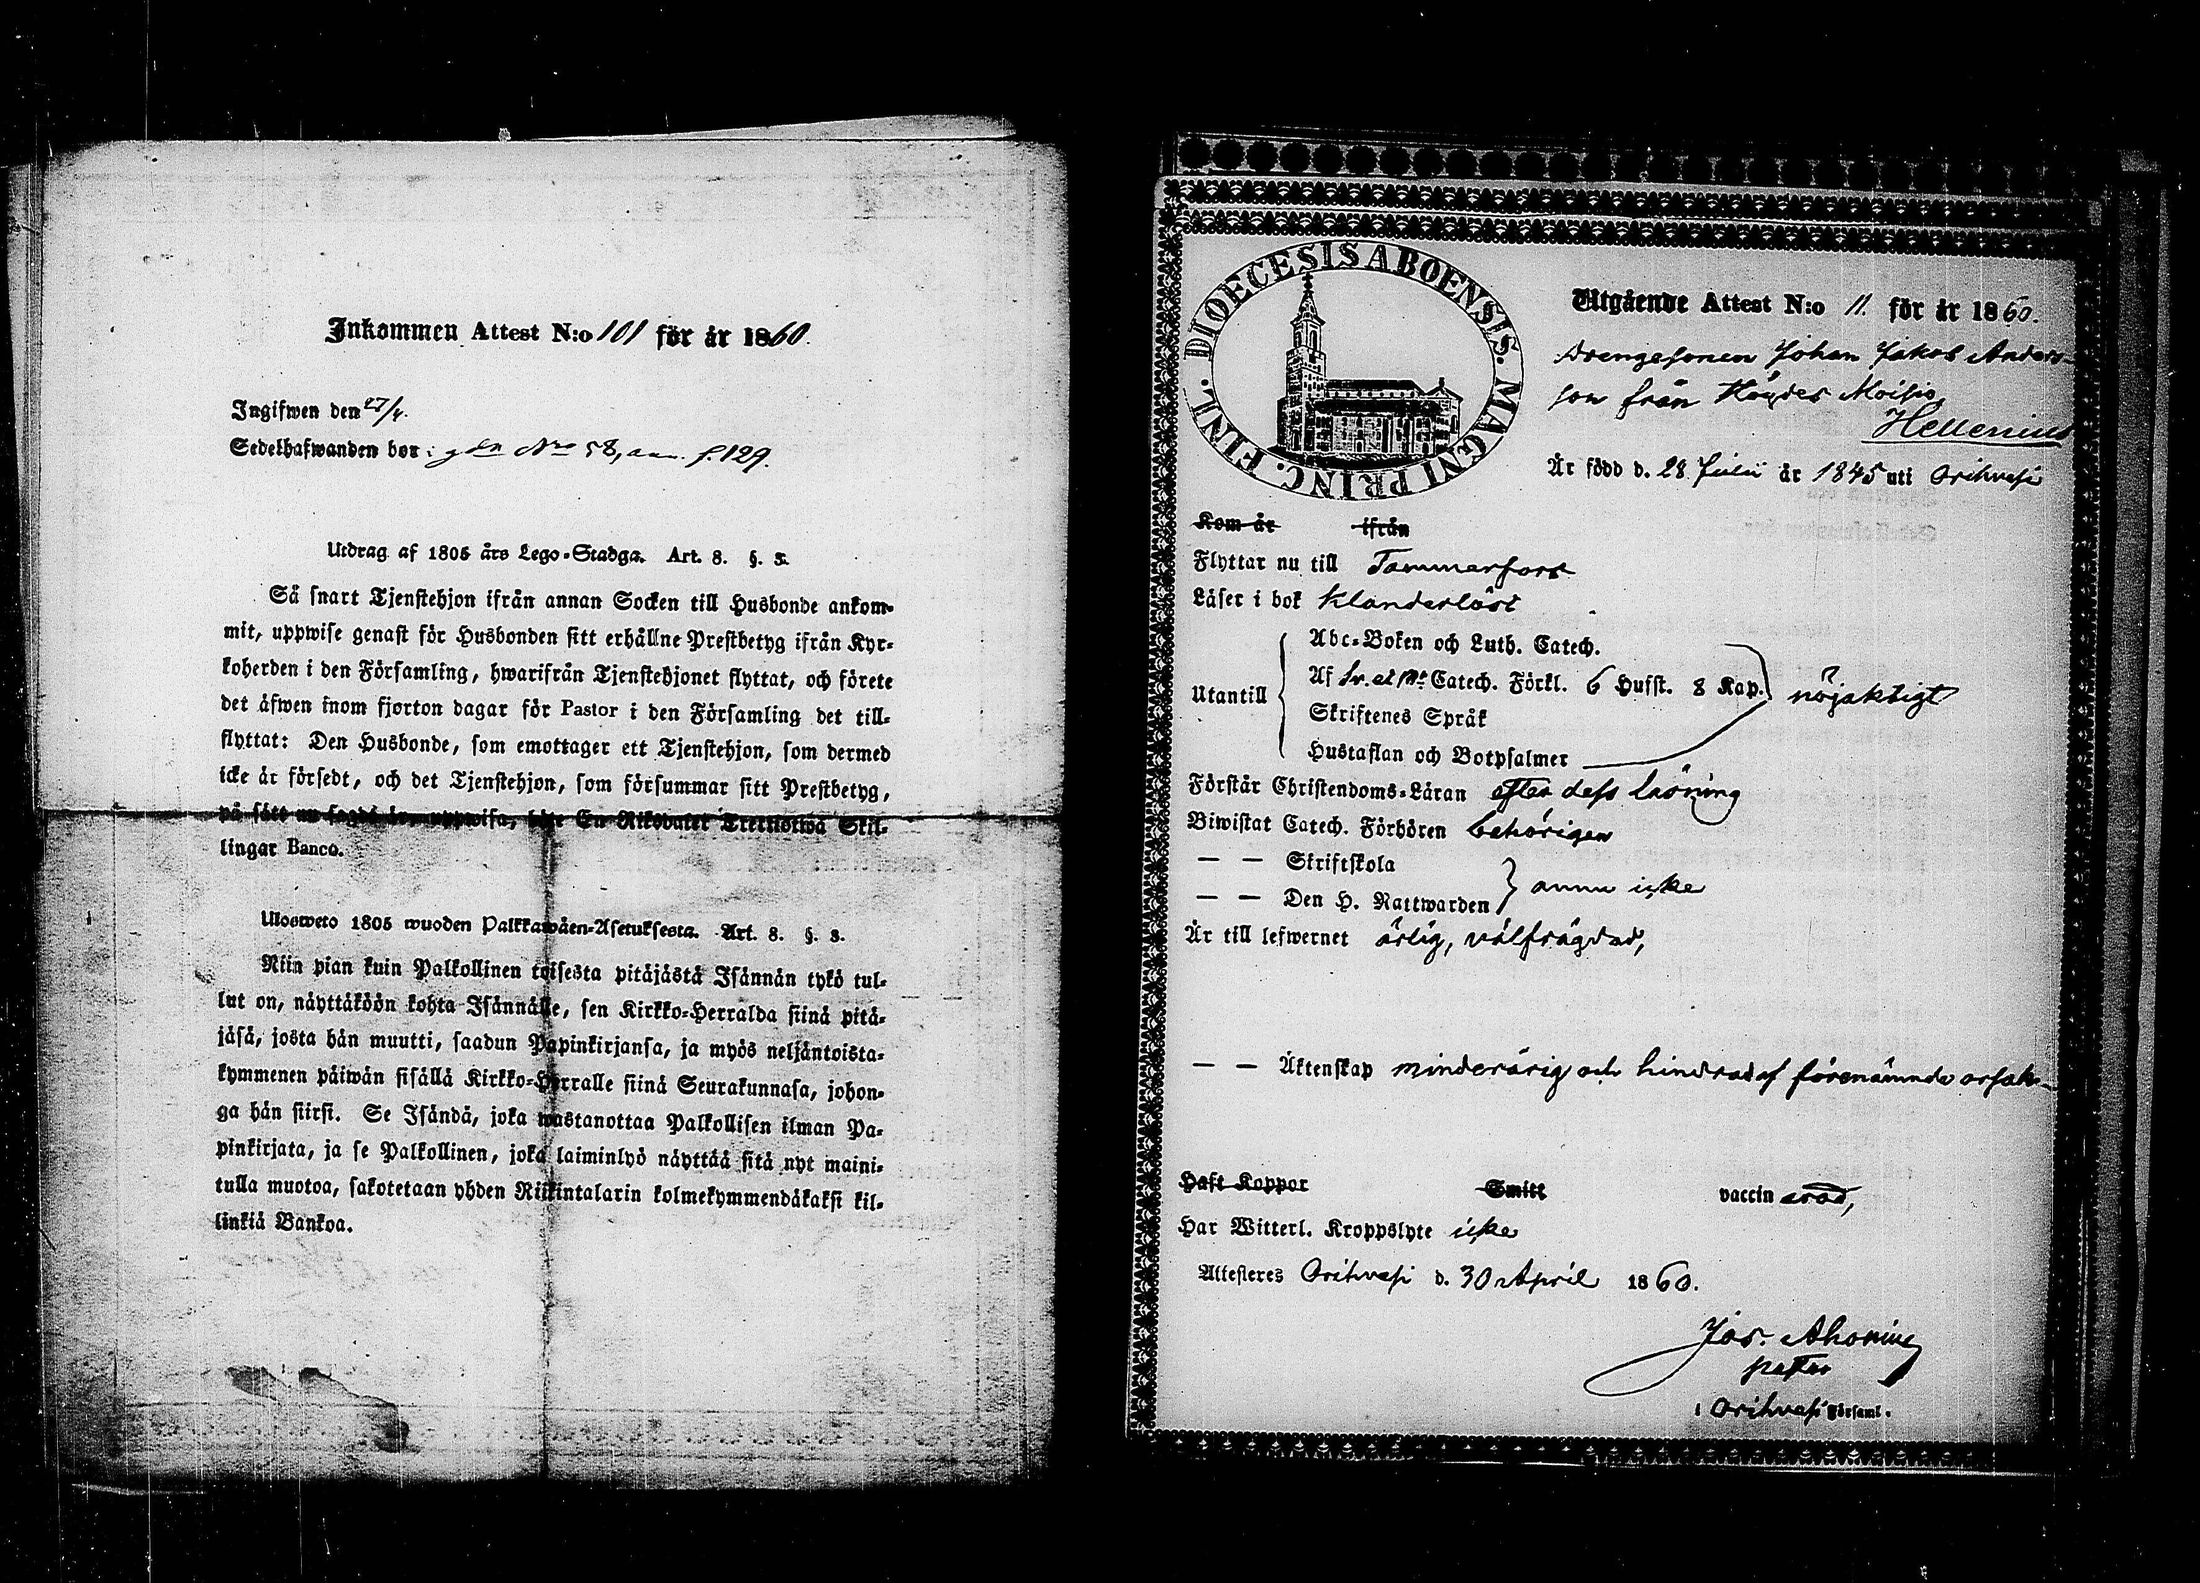 Inkommen Attest N:o 101 för år 1860.
Ingifwen den 27/4.
Sedelhafwanden bor i gdn Nro 58, f. 129.
Utdrag af 1805 års Lego-Stadga. Art. 8. §. 3.
Så snart Tjenstehjon ifrån annan Socken till Husbonde ankom-
mit, uppwise genast för Husbonden sitt erhållne Prestbetyg ifrån Kyr-
koherden i den Församling, hwarifrån Tjenstehjonet flyttat, och förete
det äfwen inom fjorton dagar för Pastor i den Församling det till-
flyttat: Den Husbonde, som emottager ett Tjenstehjon, som dermed
icke är försedt, och det Tjenstehjon, som försummar sitt Prestbetyg,
på sätt nu sagdt är, uppwisa, böte En Riksdaler Trettiotwå Skil-
lingar Banco.
Ulosweto 1805 wuoden Palkkawäen-Asetuksesta. Art. 8. §. 3.
Niin pian kuin Palkollinen toisesta pitäjästä Isännän tykö tul-
lut on, näyttäköön kohta Isännälle, sen Kirkko-Herralda siinä pitä-
jäsä, josta hän muutti, saadun Papinkirjansa, ja myös neljäntoista-
kymmenen päiwän sisällä Kirkko-Herralle siinä Seurakunnasa, johon-
ga hän siirsi. Se Isändä, joka wastanottaa Palkollisen ilman Pa-
pinkirjata, ja se Palkollinen, joka laiminlyö näyttää sitä nyt maini-
tulla muotoa, sakotetaan yhden Riikintalarin kolmekymmendäkaksi kil-
linkiä Bankoa.
DIOECESIS ABOENSIS. MAGNI PRINC. FINL.
Utgående Attest N:o 11. för år 1860.
Drengesonen Johan Jakob Anders-
son från Moisio,
Hellenius
Är född d. 28 Julii år 1845 uti Orihvesi
Kom år ifrån
Flyttar nu till Tammerfors
Läser i bok klanderlöst
Utantill
Abc-Boken och Luth. Catech.
Af Sv. Catech. Förkl. 6 Hufst. 8 Kap. nöjaktigt
Skriftenes Språk
Hustaflan och Botpsalmer
Förstår Christendoms-Läran efter dess läsning
Biwistat Catech. Förhören behörigen
— — Skriftskola
— — Den H. Nattwarden } ännu icke
Är till lefwernet ärlig, välfrägdad,
— — Äktenskap minderårig och hindrad af förenämnde orsak.
Haft Koppor Smitt vaccinerad,
Har Witterl. Kroppslyte icke
Attesteres Orihvesi d. 30 April 1860.
Jos. Ahoning
pastor
i Orihvesi Församl.